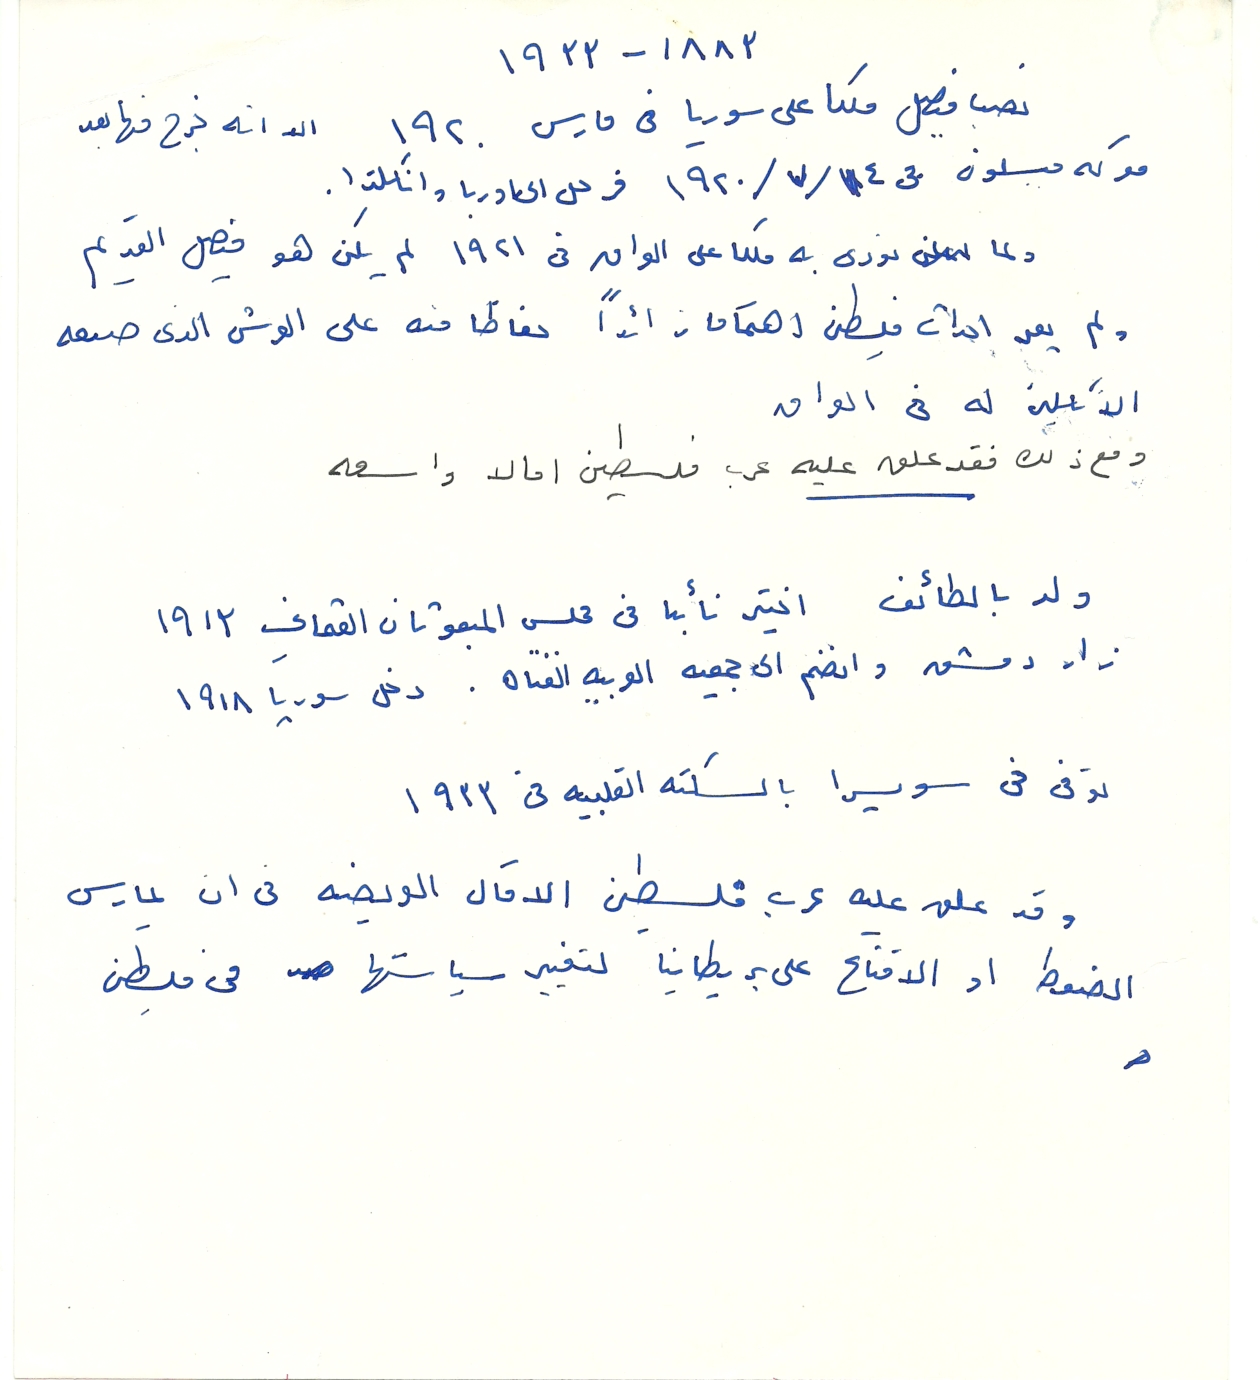 ١٨٨٣ - ١٩٣٣
نصب فيصل ملكا على سوريا فى مارس ١٩٢٠ الا انه خرج منها بعد
معركه ميسلون فى ٢٤/٧/١٩٢٠ فرحل الى اوربا وانكلترا.
ولما نودى به ملكا على العراق فى ١٩٢١ لم يكن هو فيصل القديم
ولم يعر احداث فلسطين اهتماما زائداً حفاظا منه على العرش الذى صنعه
الانكليز له فى العراق
ومع ذلك فقد علق عليه عرب فلسطين امالا واسعه
ولد بالطائف اختير نائبا فى مجلس المبعوثان العثماني ١٩١٣
زار دمشق وانضم الى جمعيه العربيه الفتاه . دخل سوريا ١٩١٨
توفى فى سويسرا بالسكته القلبيه فى ١٩٣٣
وقد علق عليه عرب فلسطين الامال العريضه فى ان يمارس
الضغوط او الاقناع على بريطانيا لتغيير سياستها فى فلسطين